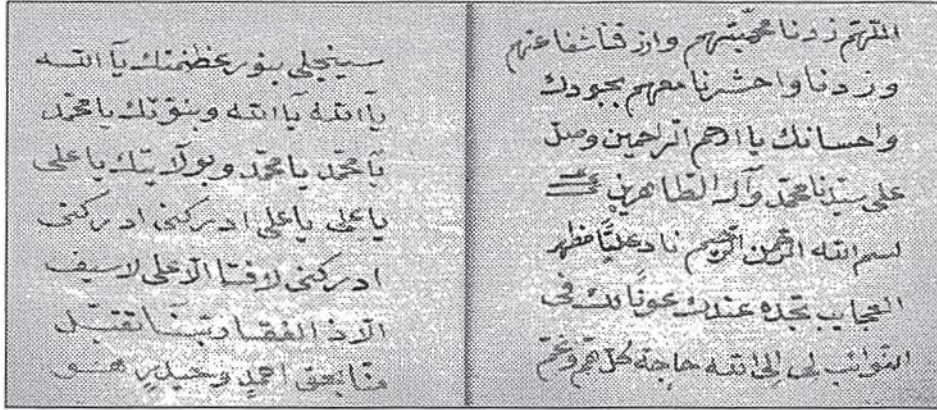 اللهم زدنا محبتهم وارزقنا شفاعتهم
وزدنا واحشرنا معهم بجودك
واحسانك يا ارحم الراحمين وصل
على سيدنا محمد وآله الطاهرين
بسم الله الرحمن الرحيم ناد عليًّا مظهر
العجايب تجده عندك عونًا لك في
النوائب لي الى الله حاجة كل هم وغم
سينجلي بنور عظمتك يآ الله
يآ الله يآ الله وبنوتك يا محمد
يا محمد يا محمد وبولايتك يا على
يا على يا على ادركنى ادركنى
ادركنى لا فتا الا على لا سيف
الا ذ الفقار ربنا تقبل
منا بحق احمد وحيدر هو